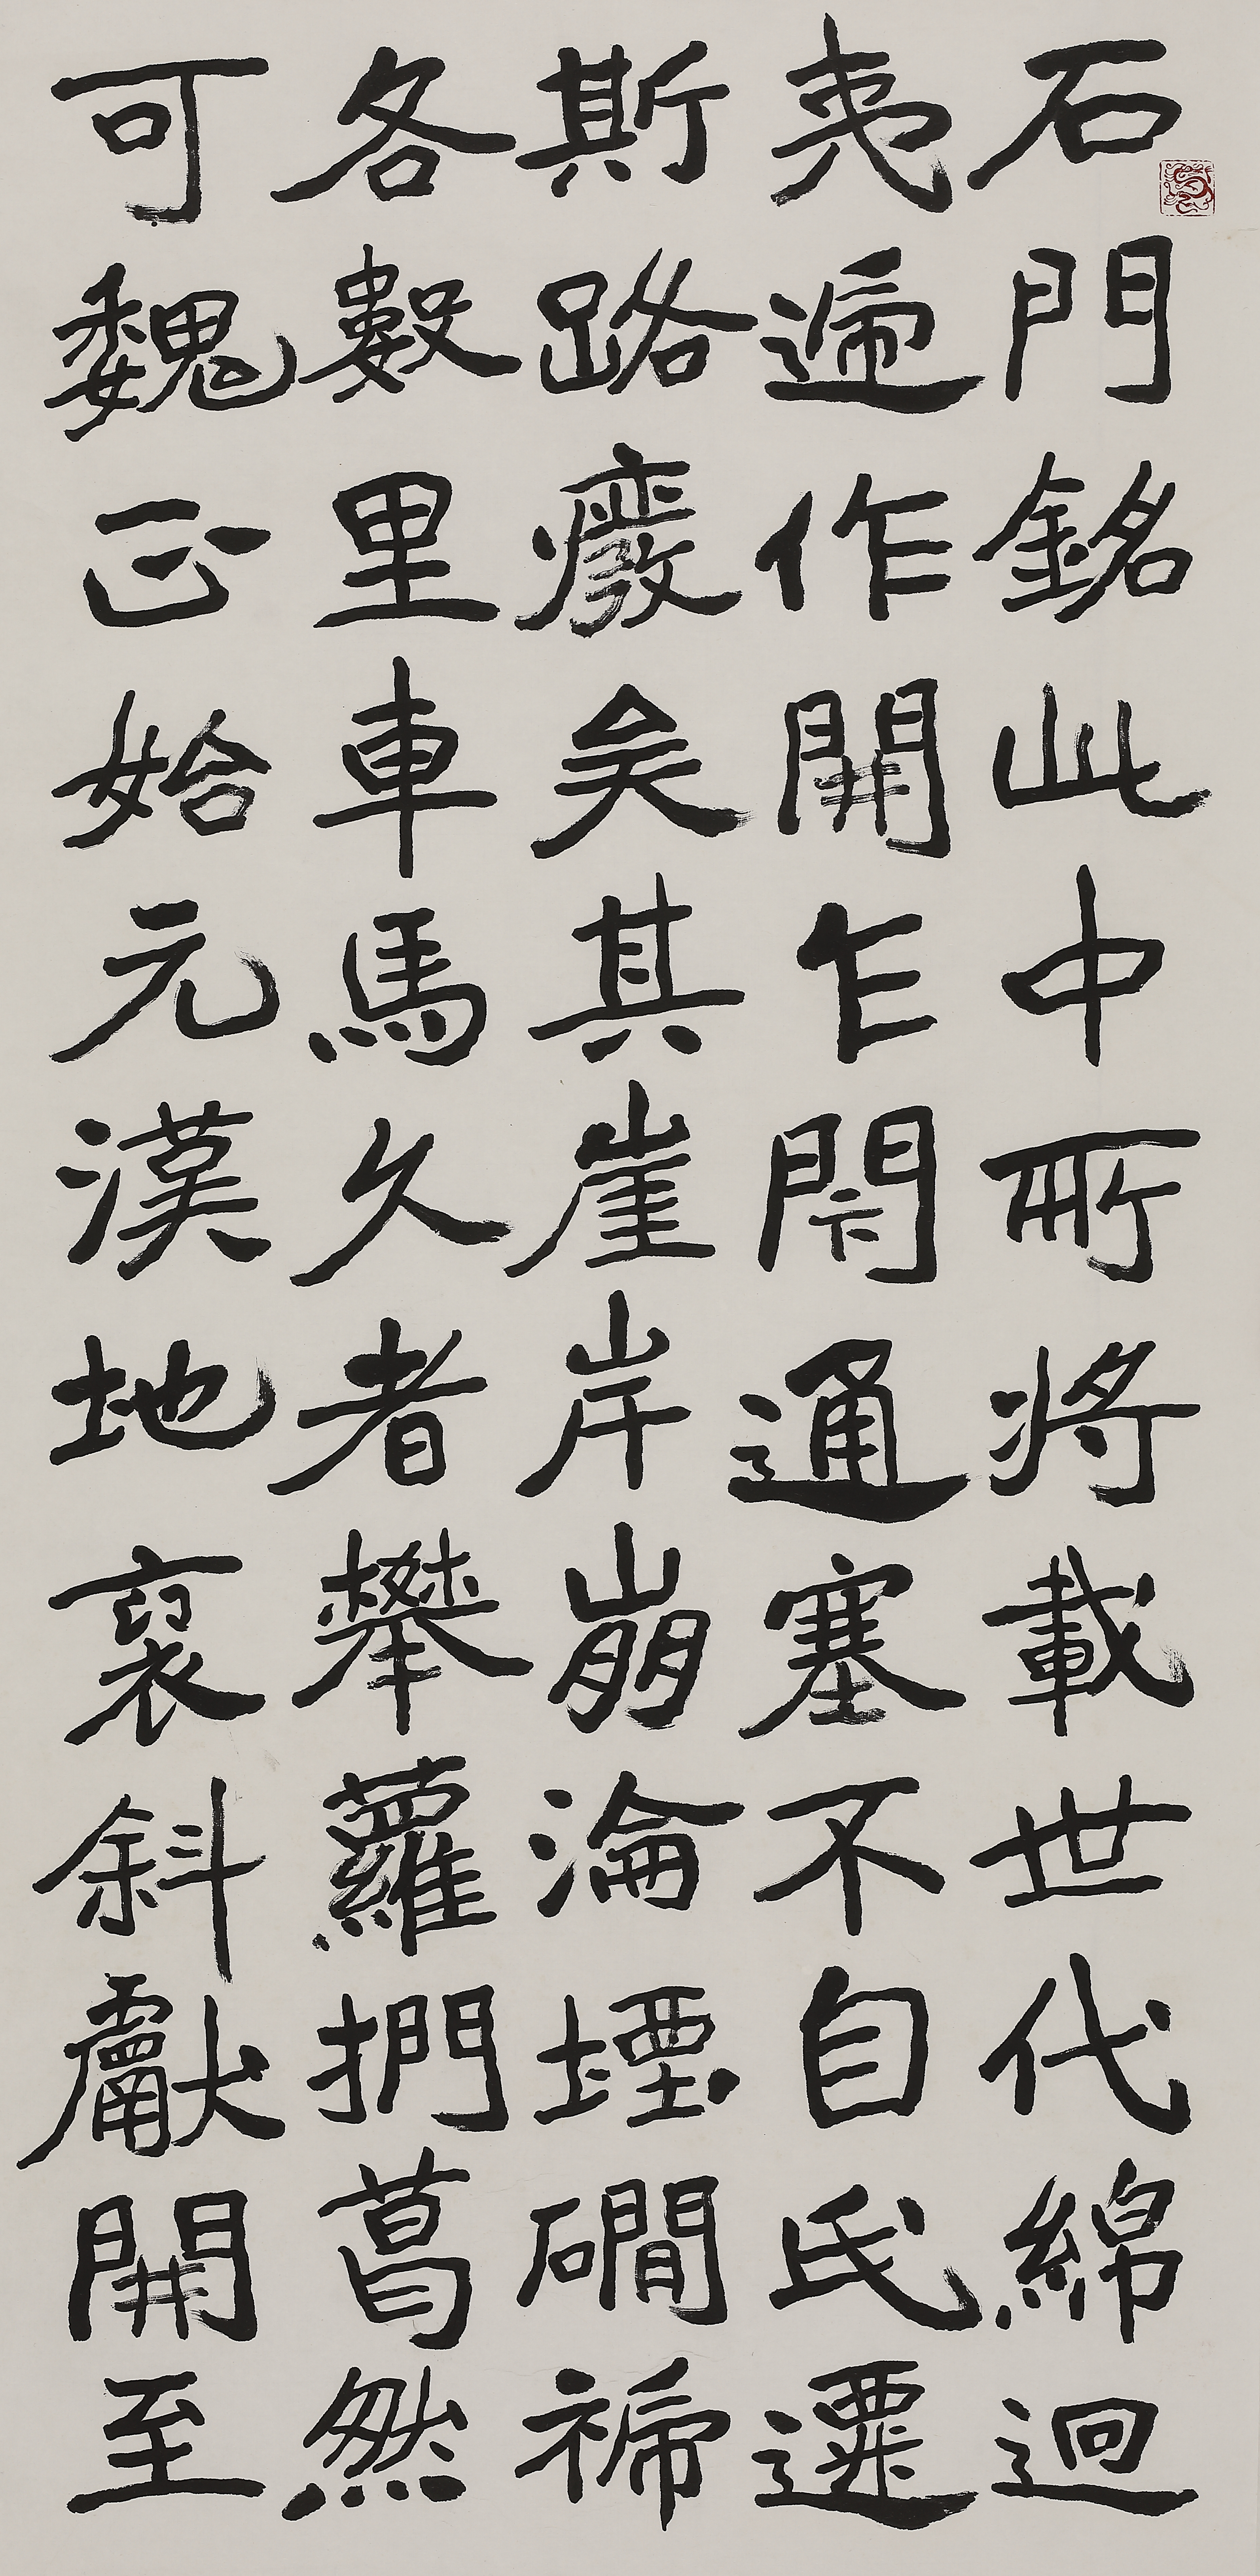 石門銘此中所將載世代綿迴
夷遞作開乍閇通塞不自氏遷
斯路廢矣其崖岸崩淪堙磵褫
各數里車馬久者攀蘿捫葛然
可魏正始元漢地褒斜獻開至